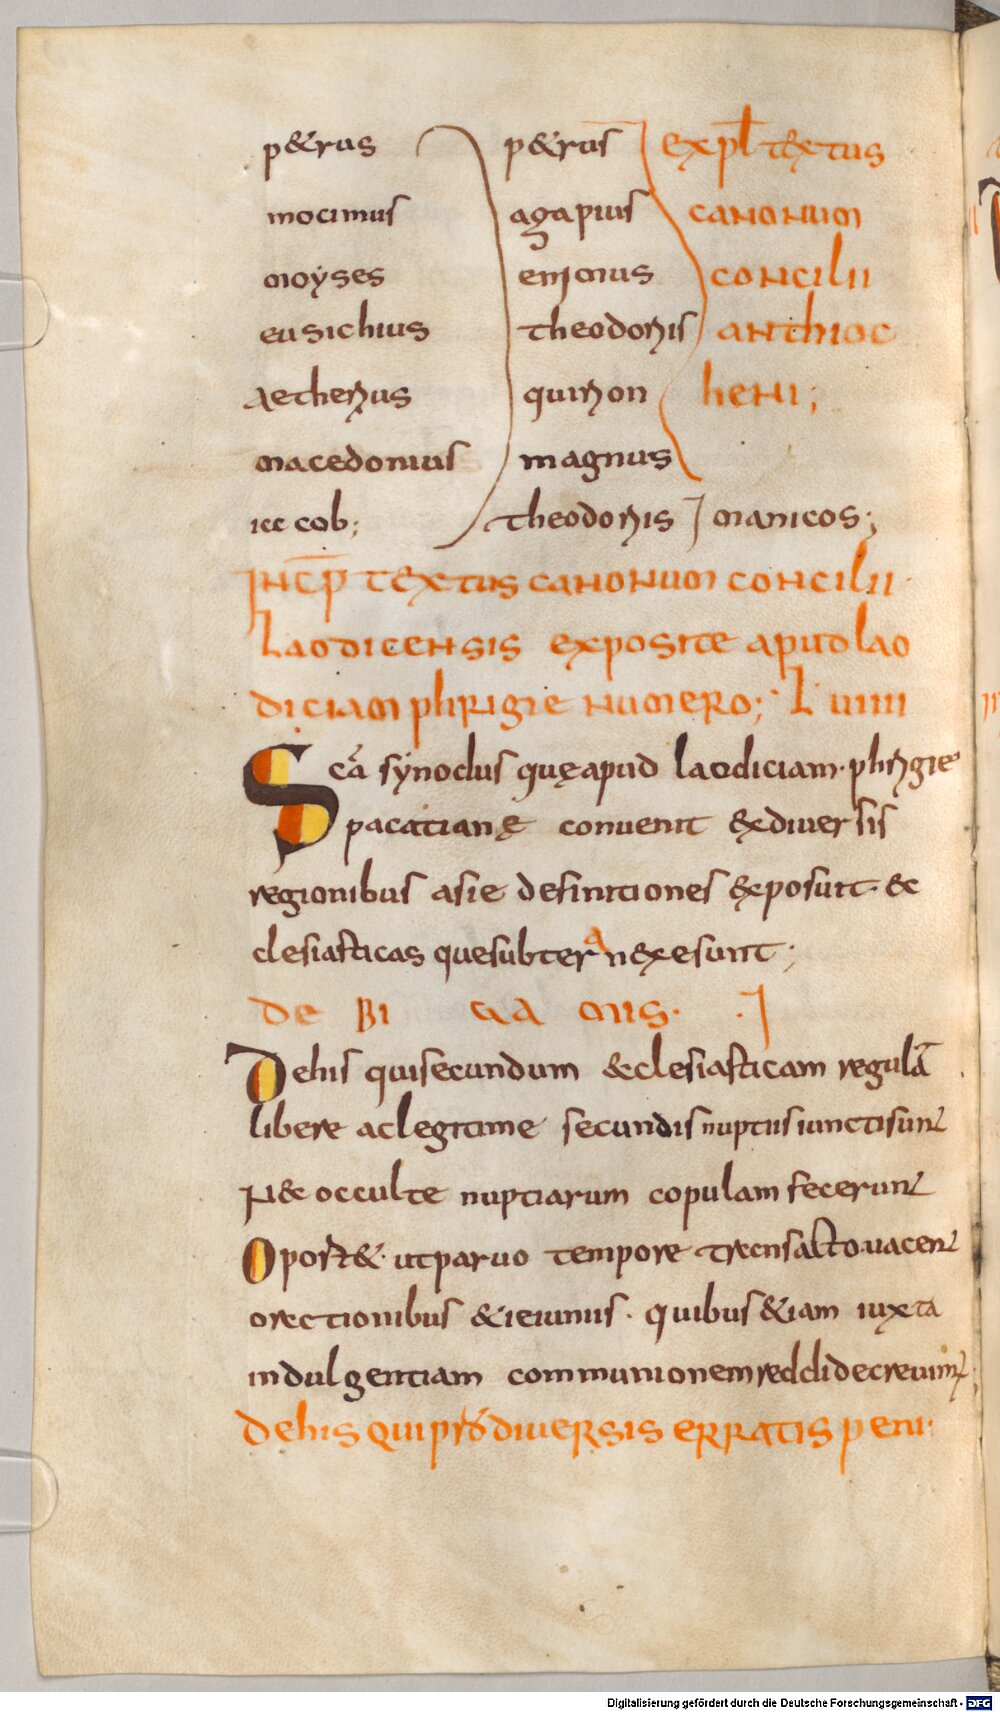 p&rus
mocimus
moyses
eusichius
aetherius
macedonius
iacob;
p&rus
agapius
theodoris
quirion
magnus
theodoris manicos;
expł textus
canonum
concilii
anthioc
heni;
INCP̄ textus canonum concilii
Laodicensis exposite apud lao
diciam phrigie numero; Lviiii
Sc̄a synodus quę apud laodiciam. phrygie
pacatianę convenit ex diversis
regionibus asie definitiones exposuit. &c
clesiasticas que subter anexe sunt;
de BI GA mis. I
De his qui secundum &cclesiasticam regulā
libere ac legitime secundis nuptiis iuncti sunt
N& occulte nuptiarum copulam fecerunt
Oport&. ut parvo tempore transacto vacent
orationibus & ieiuniis. quibus &iam iuxta
indulgentiam communionem reddi decrevimus;
De his qui pro diversis erratis peni
Digitalisierung gefördert durch die Deutsche Forschungsgemeinschaft - DFG